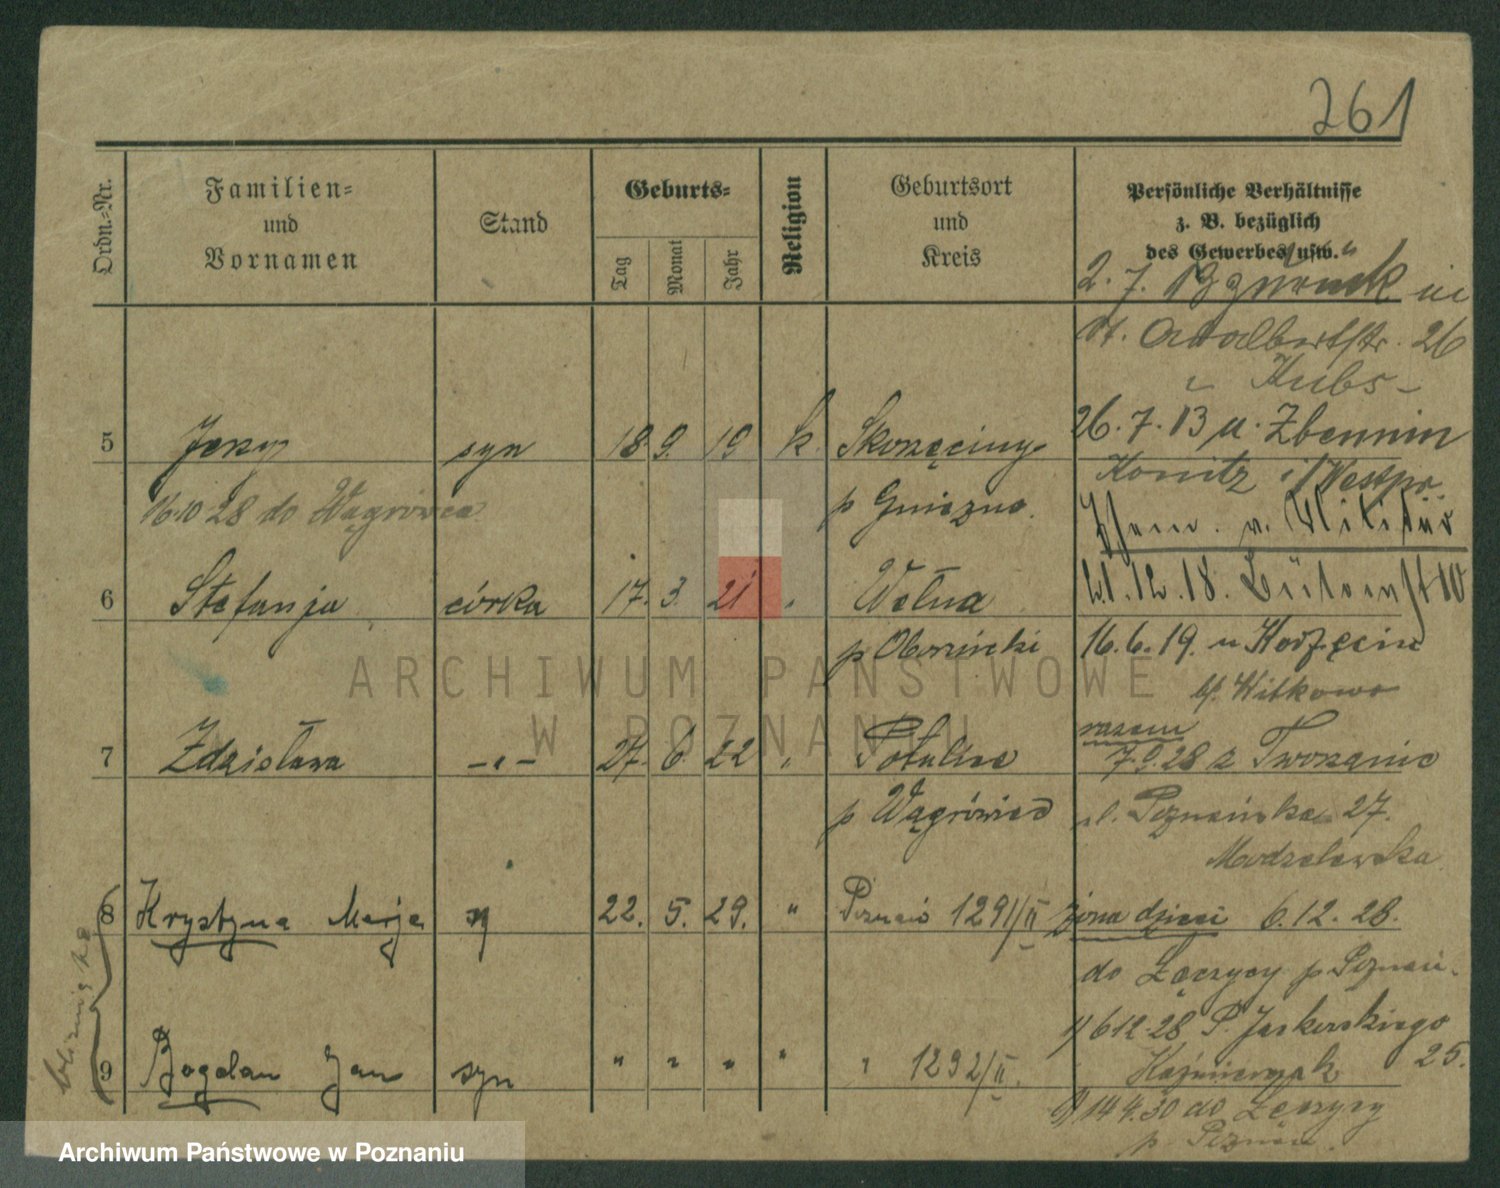 261
Ordn.-Nr.
Familien-
und
Vornamen
Stand
Geburts-
Tag
Monat
Jahr
Religion
Geburtsort
und
Kreis
Persönliche Verhältnisse
z. B. bezüglich
des Gewerbes usw.
2. 7. in
Adalbertstr. 26
Kubs-
26. 7. 13 u. Zbennin
Konitz i/Westpr.
5 Jerzy syn 18. 9. 19 k. Skorzęciny
p Gniezno.
16.10 28 do Wągrowca
v. Militär
6 Stefanja córka 17. 3. 21 " Wełna
p Obornicki
21. 12. 18. 10
16. 6. 19. u Korzęcin
b/. Witkowo
7 Zdzisława - " - 27. 6. 22 " Potulice
p Wągrówiec
razem
7.9.28 z Tworzanic
ul. Poznańska 27.
Modzelewska
8 Krystyna Marja 22. 5. 29. " Poznań 1291/II
żona dzieci 6. 12. 28.
do Łęczycy p Poznań.
bliźnięta
9 Bogdan Jan syn " " " " " 1292/II.
1) 6 12 28 P. Jackowskiego
Kaźmierczak 25.
14 4. 30 do Łęczycy
p. Poznań
ARCHIWUM PAŃSTWOWE
W POZNANIU
Archiwum Państwowe w Poznaniu